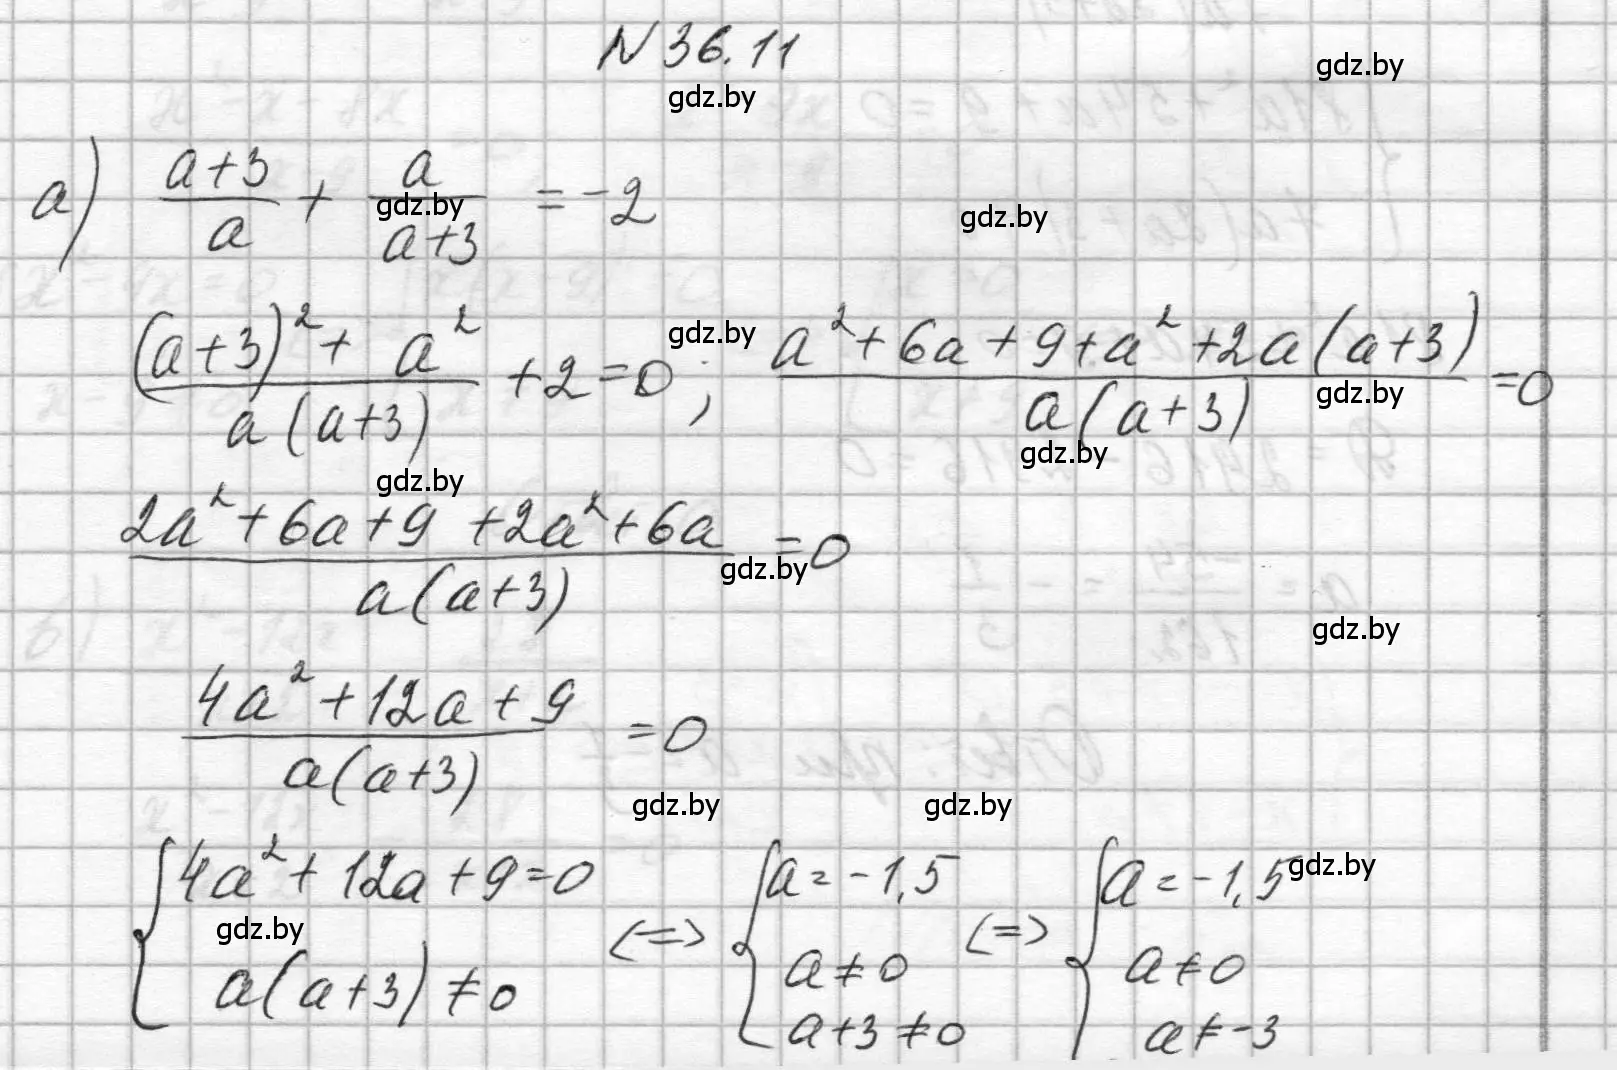 N 36.11
gdz.by
gdz.by
а) (a+3)/a + a/(a+3) = -2
gdz.by
gdz.by
((a+3)² + a²)/(a(a+3)) + 2 = 0; (a² + 6a + 9 + a² + 2a(a+3))/(a(a+3)) = 0
gdz.by
gdz.by
gdz.by
gdz.by
(2a² + 6a + 9 + 2a² + 6a)/(a(a+3)) = 0
gdz.by
gdz.by
(4a² + 12a + 9)/(a(a+3)) = 0
gdz.by
gdz.by
{ 4a² + 12a + 9 = 0 <=> { a = -1,5 <=> { a = -1,5
gdz.by
gdz.by
a(a+3) ≠ 0 a ≠ 0 a ≠ 0
a+3 ≠ 0 a ≠ -3